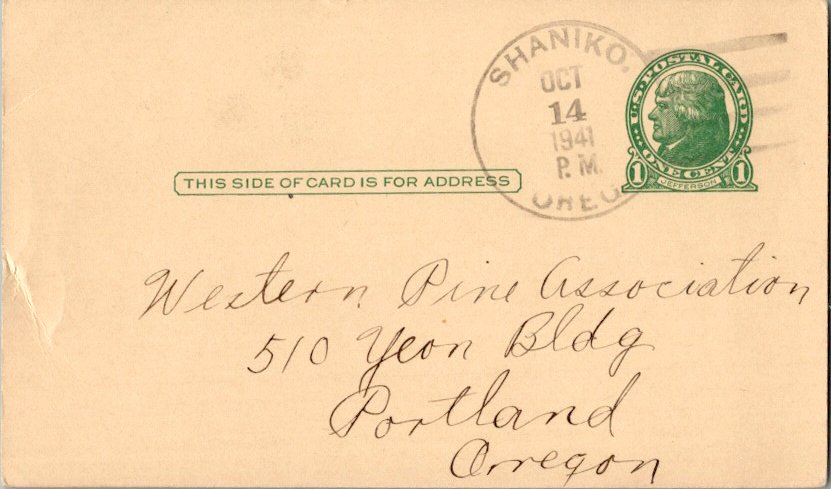 SHANIKO,
OCT
14
1941
P.M.
OREG
U.S. POSTAL CARD
ONE CENT
1 JEFFERSON 1
THIS SIDE OF CARD IS FOR ADDRESS
Western Pine Association
510 Yeon Bldg
Portland
Orregon